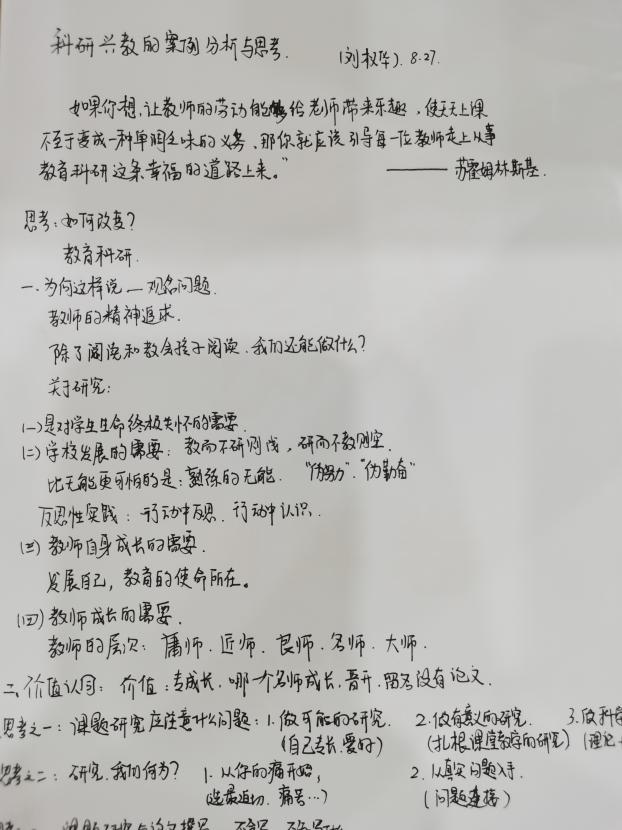 科研兴教的案例分析与思考. (刘权华). 8.27.
如果你想,让教师的劳动能够给老师带来乐趣,使天天上课
不至于变成一种单调乏味的义务,那你就应该引导每一位教师走上从事
教育科研这条幸福的道路上来。" —— 苏霍姆林斯基.
思考:如何改变?
教育科研.
一.为何这样说—观念问题.
教师的精神追求.
除了阅读和教会孩子阅读.我们还能做什么?
关于研究:
(一)是对学生生命终极关怀的需要.
(二)学校发展的需要:教而不研则浅,研而不教则空.
比无能更可怕的是:熟练的无能. "伪努力"."伪勤奋"
反思性实践:行动中反思.行动中认识.
(三)教师自身成长的需要.
发展自己,教育的使命所在。
(四)教师成长的需要.
教师的层次:庸师.匠师.良师.名师.大师.
二.价值认同:价值:专成长.哪一个名师成长.晋升.没有论文.
思考之一:课题研究应注意什么问题:1.做可能的研究. 2.做有意义的研究. 3.做科学
(自己专长.爱好) (扎根课堂教学的研究) (理论
思考之二:研究.我们何为? 1.从你的痛开始, 2.从真实问题入手.
(选最迫切.痛苦…) (问题连接)